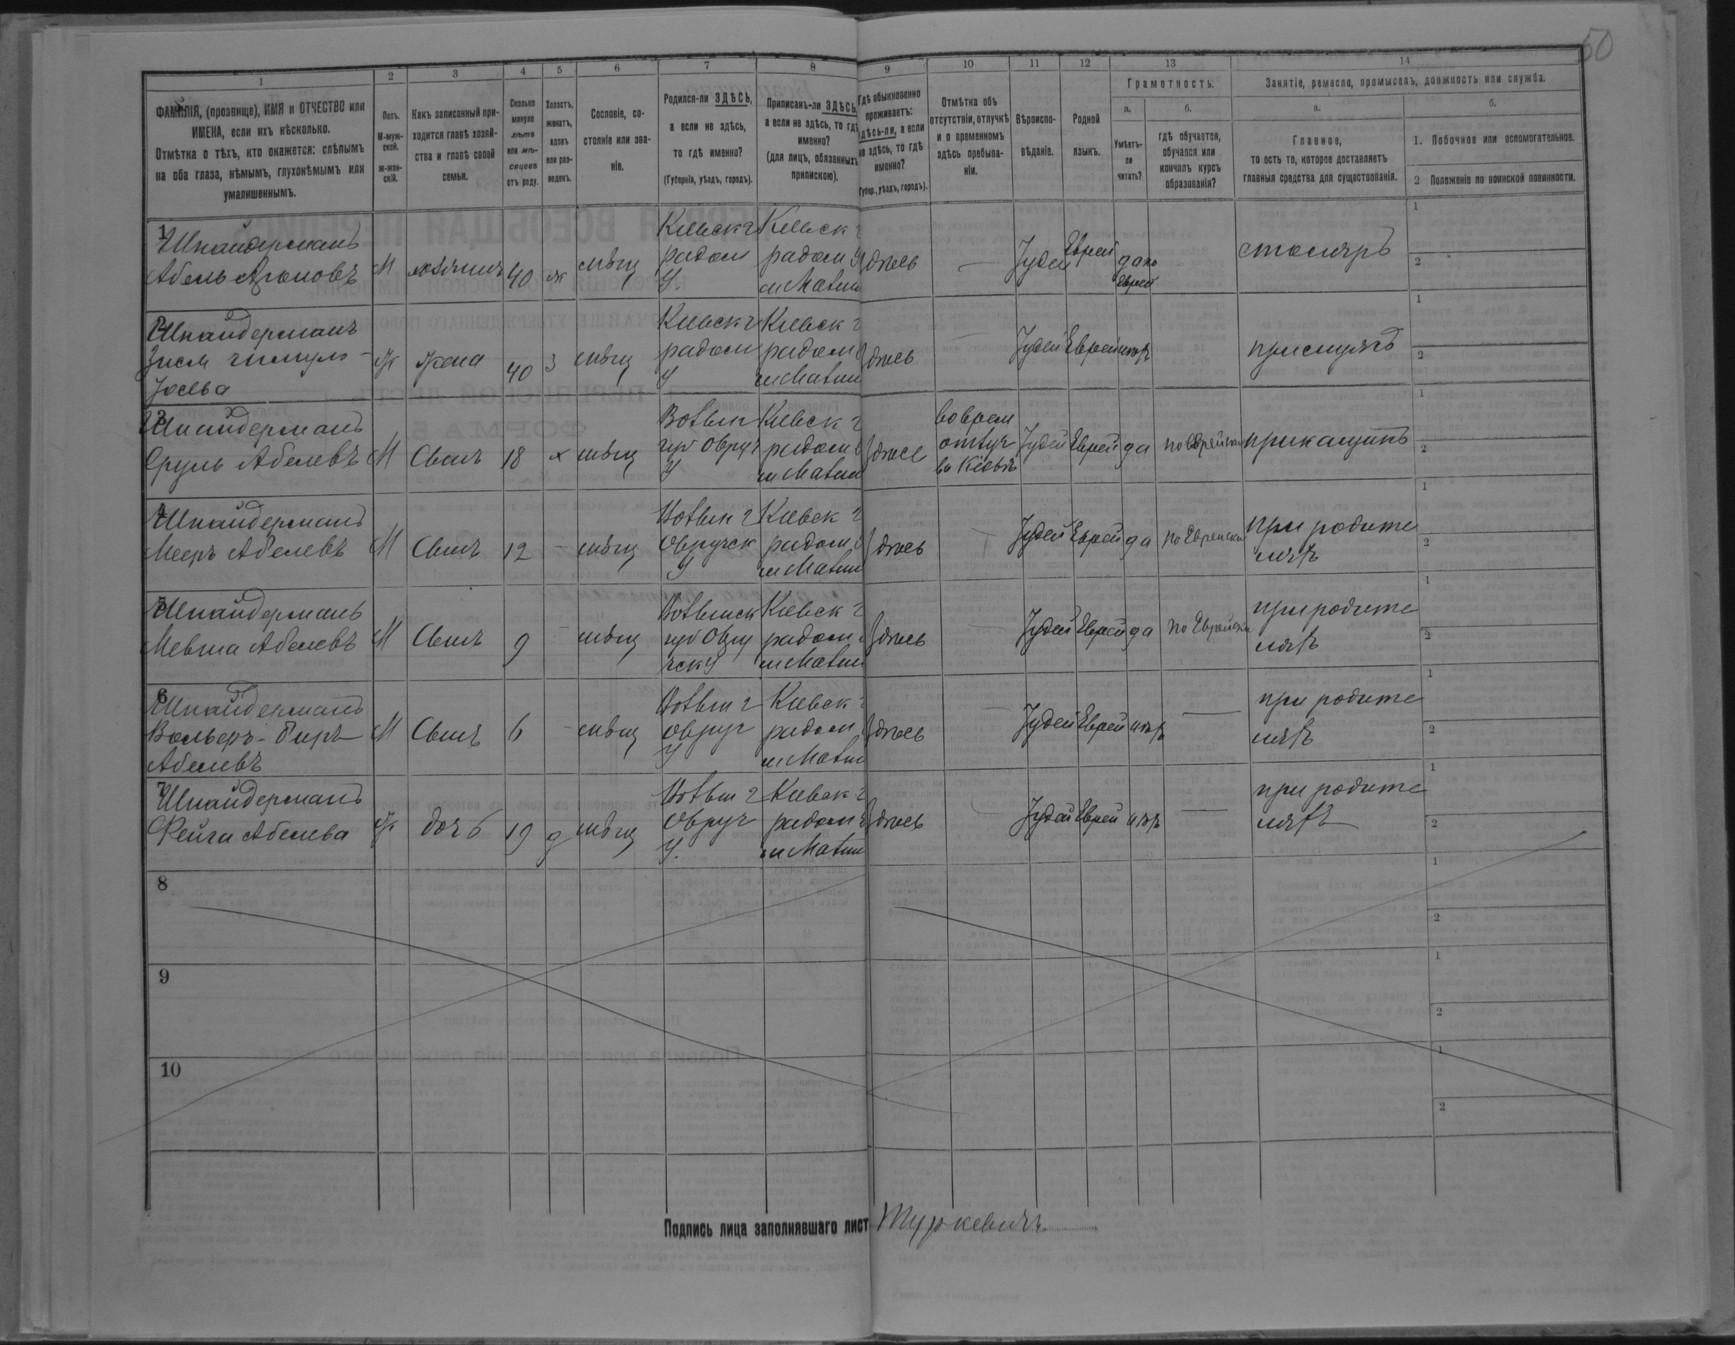 50
1 2 3 4 5 6 7 8 9 10 11 12 13 14
ФАМИЛІЯ, (прозвище), ИМЯ и ОТЧЕСТВО или
ИМЕНА, если ихъ нѣсколько.
Отмѣтка о тѣхъ, кто окажется: слѣпымъ
на оба глаза, нѣмымъ, глухонѣмымъ или
умалишеннымъ.
Полъ.
М-муж-
ской.
Ж-жен-
скій.
Какъ записанный при-
ходится главѣ хозяй-
ства и главѣ своей
семьи.
Сколько
минуло
лѣтъ
или мѣ-
сяцевъ
отъ роду.
Холостъ,
женатъ,
вдовъ
или раз-
веденъ.
Сословіе, со-
стояніе или зва-
ніе.
Родился-ли ЗДѢСЬ,
а если не здѣсь,
то гдѣ именно?
(Губернія, уѣздъ, городъ).
Приписанъ-ли ЗДѢСЬ,
а если не здѣсь, то гдѣ
именно?
(для лицъ, обязанныхъ
припискою).
Гдѣ обыкновенно
проживаетъ:
здѣсь-ли, а если
не здѣсь, то гдѣ
именно?
(Губер., уѣздъ, городъ).
Отмѣтка объ
отсутствіи, отлучкѣ
и о временномъ
здѣсь пребыва-
ніи.
Вѣроиспо-
вѣданіе.
Родной
языкъ.
Грамотность.
а.
Умѣетъ-
ли
читать?
б.
гдѣ обучается,
обучался или
кончилъ курсъ
образованія?
Занятіе, ремесло, промыселъ, должность или служба.
а.
Главное,
то есть то, которое доставляетъ
главныя средства для существованія.
б.
1. Побочное или вспомогательное.
2 Положеніе по воинской повинности.
1
Шнайдерманъ
Абель Ароновъ
М хозяинъ 40 ж мѣщ
Кіевск г
радом
У.
Кіевск г
радом у
м Матин
здѣсь — Іудей Еврей
да по
Еврей
столяръ
2
Шнайдерманъ
Іосева
Ж жена 40 з мѣщ
Кіевск г
радом
У
Кіевск г
радом у
м Матин
здѣсь — Іудей Еврей нѣт
прислуга
3
Шнайдерманъ
Сруль Абелевъ
М Сынъ 18 х мѣщ
Волын
губ Овруч
У
Кіевск г
радом у
м Матин
здѣсь
во врем
отлуч
въ Кіевѣ
Іудей Еврей да по Еврейски приказчикъ
4
Шнайдерманъ
Мееръ Абелевъ
М Сынъ 12 - мѣщ
Волын г
Овручск
У
Кіевск г
радом у
м Матин
здѣсь — Іудей Еврей да по Еврейски
при родите
ляхъ
5
Шнайдерманъ
Мевша Абелевъ
М Сынъ 9 - мѣщ
Волынск
губ Овру
чск У
Кіевск г
радом у
м Матин
здѣсь — Іудей Еврей да по Еврейски
при родите
ляхъ
6
Шнайдерманъ
Абелевъ
М Сынъ 6 - мѣщ
Волын г
Овруч
У.
Кіевск г
радом у
м Матин
здѣсь — Іудей Еврей нѣт —
при родите
ляхъ
7
Шнайдерманъ
Фейга Абелева
Ж дочь 19 д мѣщ
Волын г
Овруч
У.
Кіевск г
радом у
м Матин
здѣсь — Іудей Еврей нѣт —
при родите
ляхъ
8
9
10
Подпись лица заполнявшаго листъ Туркевичъ